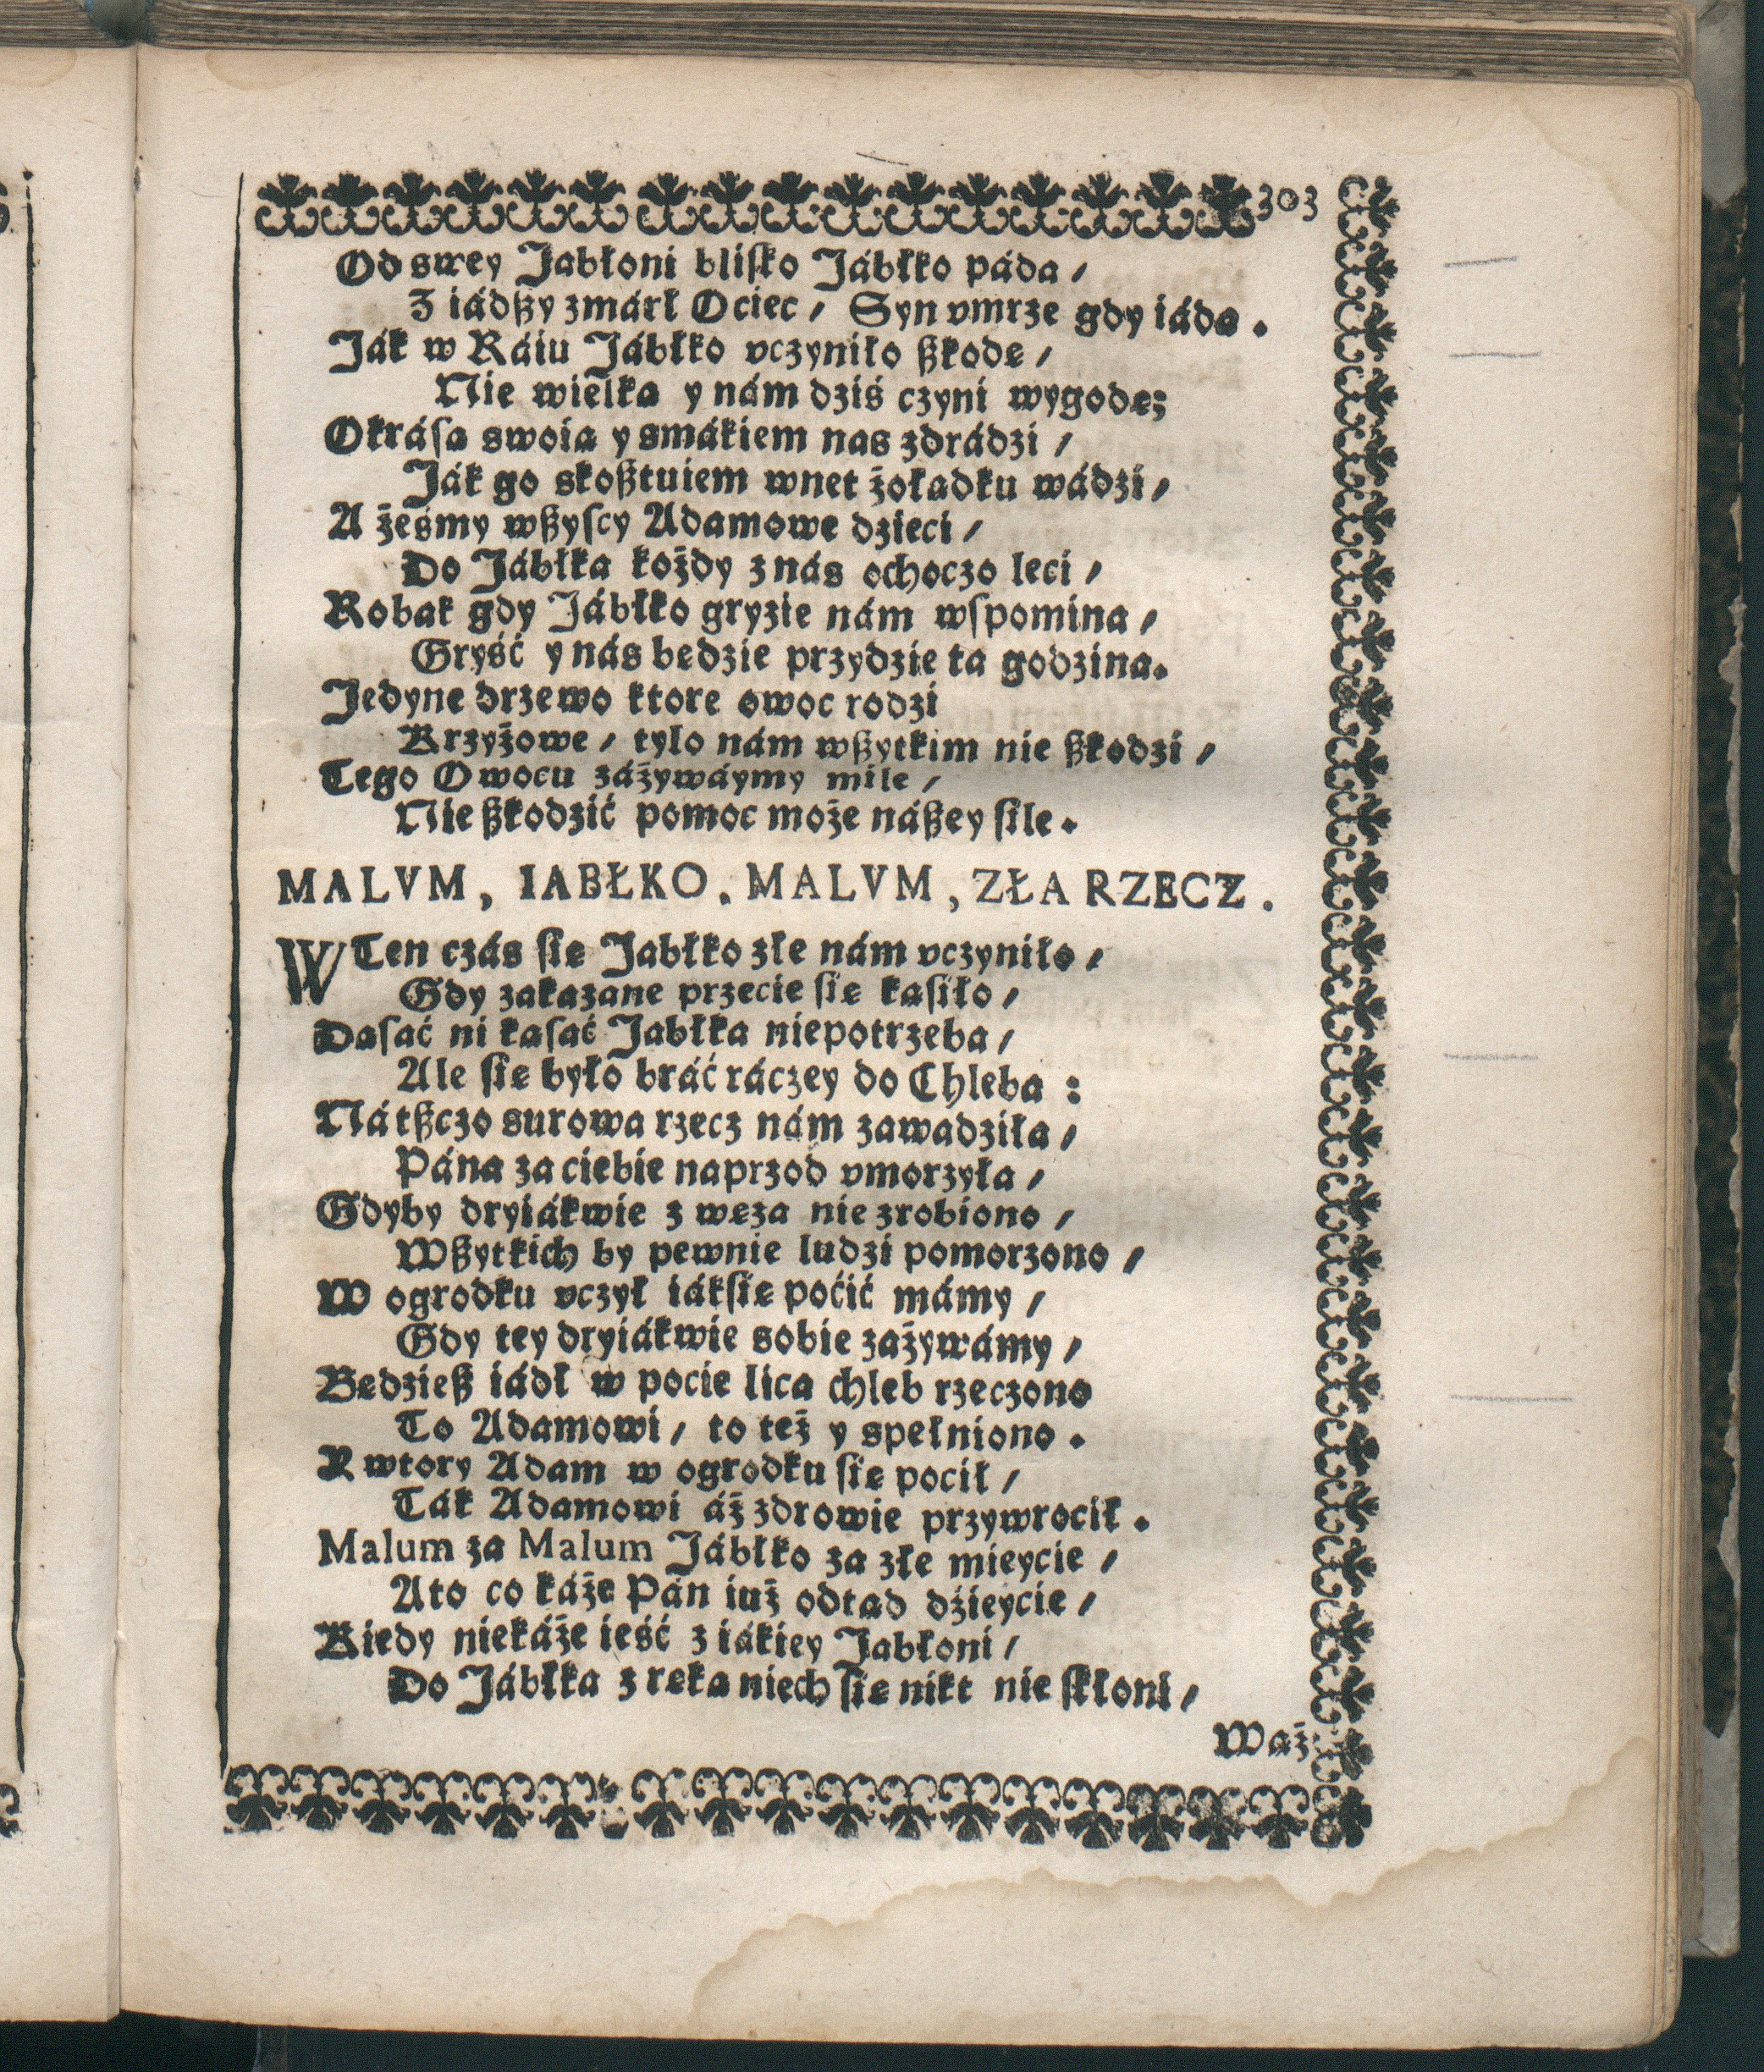 303
Od swey Jabłoni blisko Jábłko páda /
Z iádßzy zmárł Ociec / Syn vmrze gdy iáda .
Ják w Ráiu Jábłko vczyniło ßkodę /
Nie wielka y nám dziś czyni wygodę;
Okrása swoia y smákiem nas zdrádzi /
Ják go skoßtuiem wnet żoładku wádzi /
A żesmy wßyscy Adamowe dzieci /
Do Jábłka kożdy z nás ochoczo leci /
Robak gdy Jábłko gryzie nám wspomina /
Gryść y nás będzie przydzie ta godzina.
Jedyne drzewo ktore owoc rodzi
Krzyżowe / tylo nám wßytkim nie ßkodzi /
Tego Owocu záżywáymy mile /
Nie ßkodzić pomoc może náßey sile .
MALVM, IABŁKO. MALVM, ZŁA RZECZ.
W Ten czás się Jabłko złe nám vczyniło /
Gdy zakazane przecie się kasiło /
Dasać ni kasać Jabłka niepotrzeba /
Ale się było bráć ráczey do Chleba :
Nátßczo surowa rzecz nám zawadziła /
Pána za ciebie naprzod vmorzyła /
Gdyby dryiákwie z węza nie zrobiono /
Wßytkich by pewnie ludzi pomorzono /
W ogrodku vczył iáksię poćić mámy /
Gdy tey dryiákwie sobie zażywámy /
Będzieß iádł w pocie lica chleb rzeczono
To Adamowi / to też y spełniono .
Y wtory Adam w ogrodku się pocił /
Ták Adamowi áż zdrowie przywrocił .
Malum za Malum Jábłko za złe mieycie /
A to co káże Pán iuż odtad dźieycie /
Kiedy niekáże ieść z iákiey Jabłoni /
Do Jábłka z ręka niech się nikt nie skłoni /
Waż